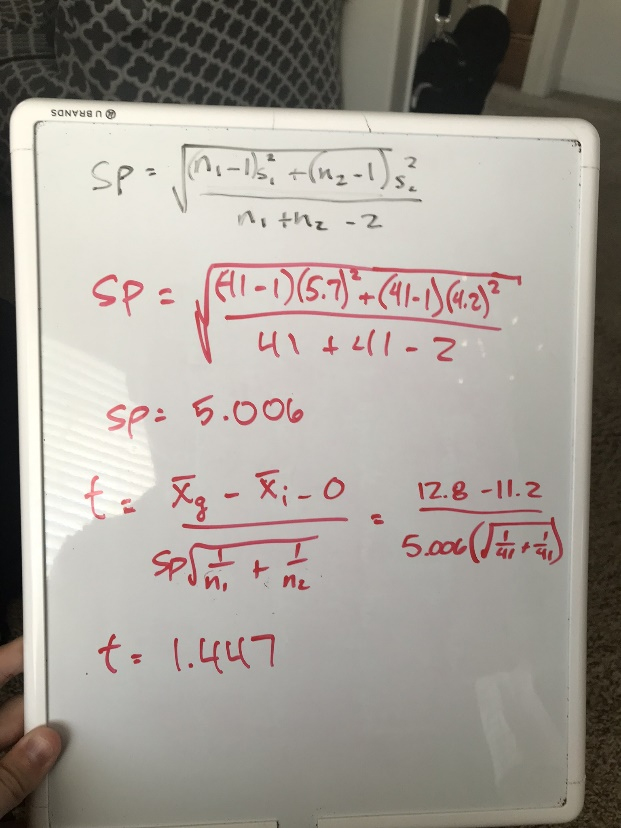 U BRANDS
SP = √((n₁-1)s₁² + (n₂-1)s₂² / n₁ + n₂ - 2)
SP = √((41-1)(5.7)² + (41-1)(4.2)² / 41 + 41 - 2)
SP = 5.006
t = (x̄g - x̄i - 0) / (SP√(1/n₁ + 1/n₂)) = (12.8 - 11.2) / (5.006(√(1/41 + 1/41)))
t = 1.447